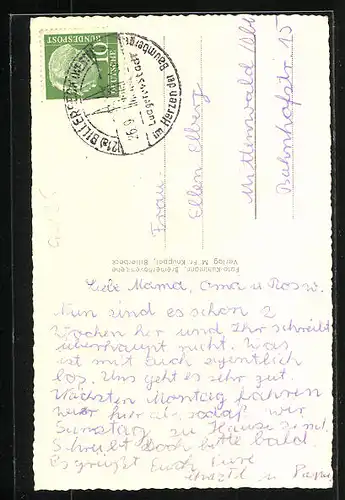 10
DEUTSCHE
BUNDESPOST
(21a) BILLERBECK
im Herzen der Baumberge
Ludgerusstadt
26.9.
Frau
Ellen Elberg
Mittenwald Obb
Bahnhofstr 15
Verlag M. Fr. Knüppel, Billerbeck
Liebe Mama, Oma u Rosw.
Nun sind es schon 2
Wochen her und Ihr schreibt
überhaupt nicht. Was
ist mit Euch eigentlich
los. Uns geht es sehr gut.
Nächsten Montag fahren
wir hier ab, sodaß wir
Dienstag zu Hause sind.
Schreibt doch bitte bald.
Es grüßt Euch Eure
u Papa